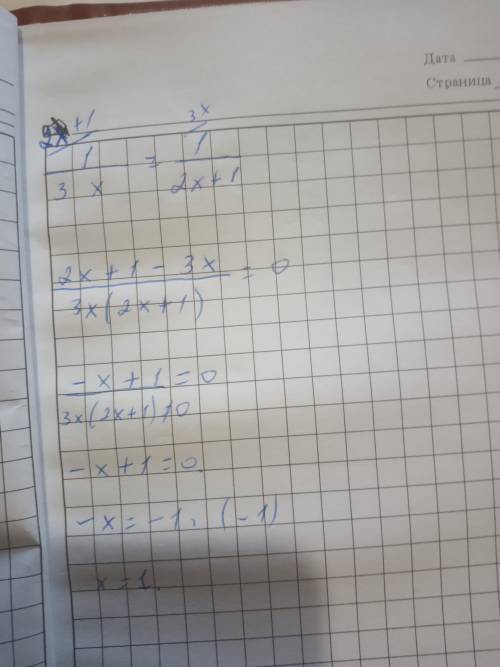 Дата
Страница
2x+1 3x
1/3x = 1/2x+1
2x+1-3x/3x(2x+1) = 0
-x+1=0
3x(2x+1)≠0
-x+1=0.
-x=-1. (-1)
x=1.